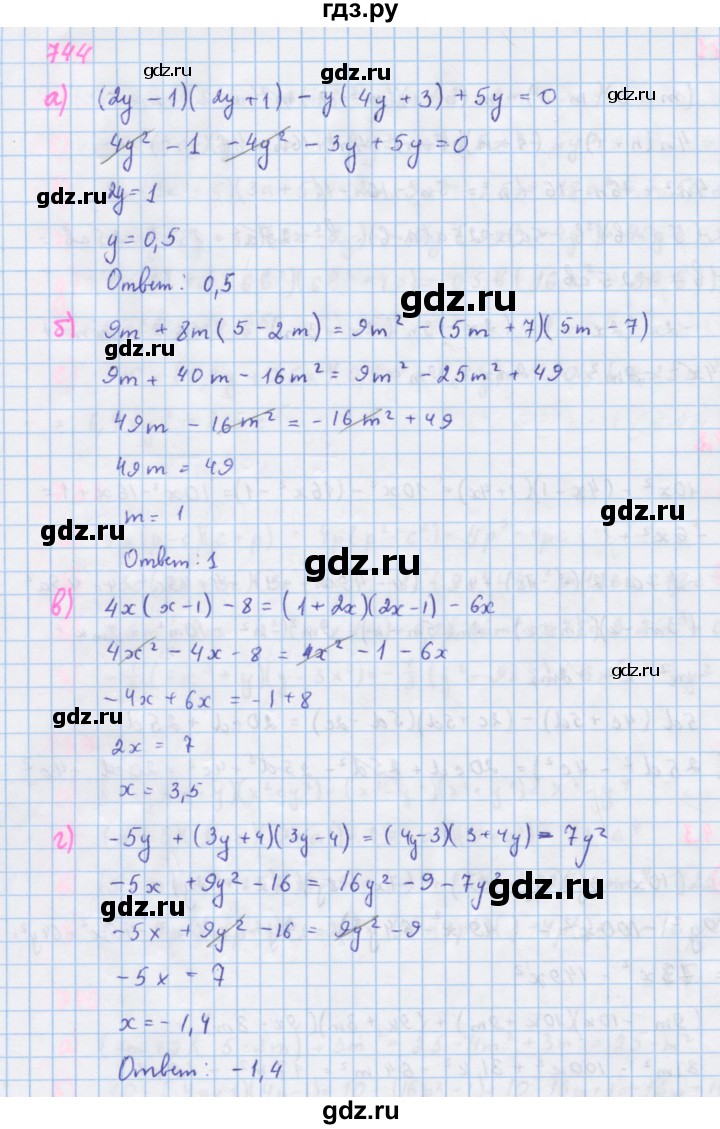 гдз.ру
744
gdz.ru
а) (2y - 1)(2y + 1) - y(4y + 3) + 5y = 0
4y² - 1 - 4y² - 3y + 5y = 0
gdz.ru
2y = 1
y = 0,5
Ответ: 0,5
gdz.ru
б) 9m + 8m(5 - 2m) = 9m² - (5m + 7)(5m - 7)
gdz.ru
9m + 40m - 16m² = 9m² - 25m² + 49
49m - 16m² = -16m² + 49
49m = 49
m = 1
gdz.ru
gdz.ru
Ответ: 1
gdz.ru
в) 4x(x - 1) - 8 = (1 + 2x)(2x - 1) - 6x
4x² - 4x - 8 = 4x² - 1 - 6x
gdz.ru
-4x + 6x = -1 + 8
gdz.ru
2x = 7
x = 3,5
г) -5y + (3y + 4)(3y - 4) = (4y - 3)(3 + 4y) - 7y²
-5x + 9y² - 16 = 16y² - 9 - 7y²
gdz.ru
gdz.ru
-5x + 9y² - 16 = 9y² - 9
-5x = 7
x = -1,4
Ответ: -1,4
gdz.ru
gdz.ru